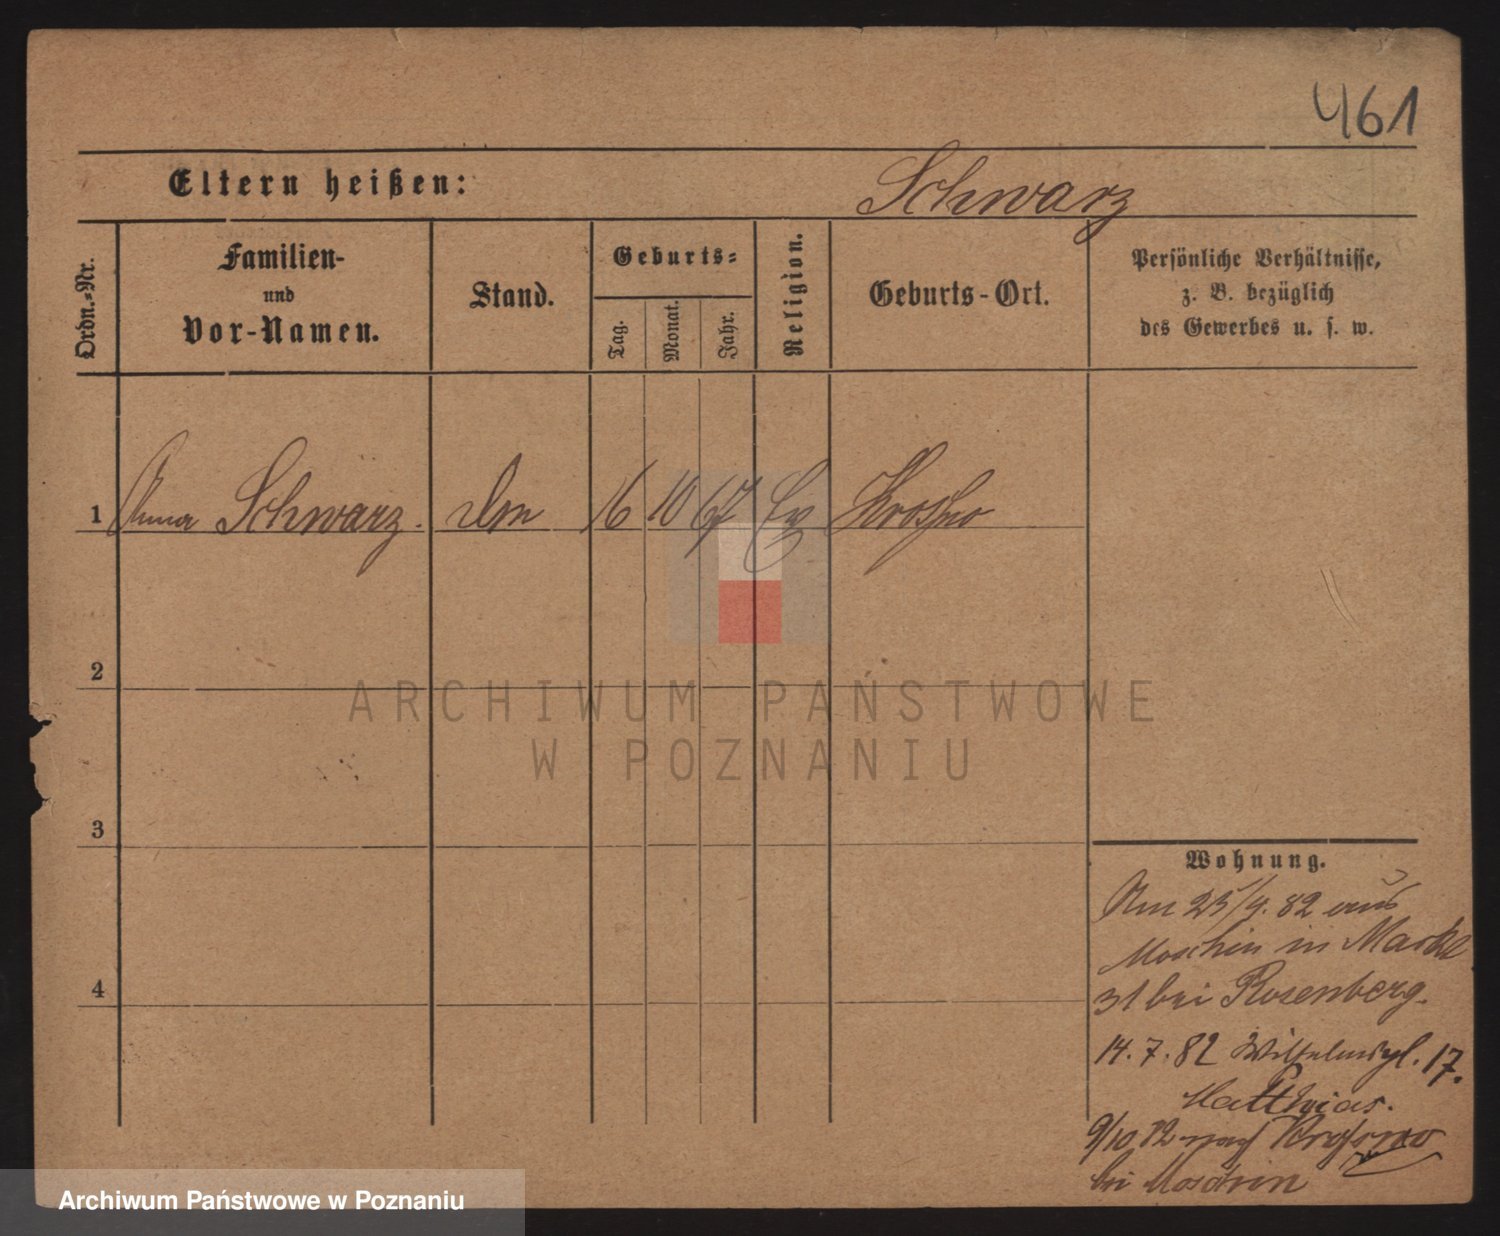 461
Eltern heißen:
Schwarz
Ordn.=Nr.
Familien-
und
Vor-Namen.
Stand.
Geburts=
Tag.
Monat.
Jahr.
Religion.
Geburts-Ort.
Persönliche Verhältnisse,
z. B. bezüglich
des Gewerbes u. s. w.
1 Anna Schwarz. 16 10 67 Ev Krosno
2
3
4
Wohnung.
Am 25/4. 82 aus
Moschin in Markt
31 bei Rosenberg.
14. 7. 82 Wilhelmspl. 17.
Matthias.
9/10 82 nach Krosno
bei Moschin
ARCHIWUM PAŃSTWOWE
W POZNANIU
Archiwum Państwowe w Poznaniu